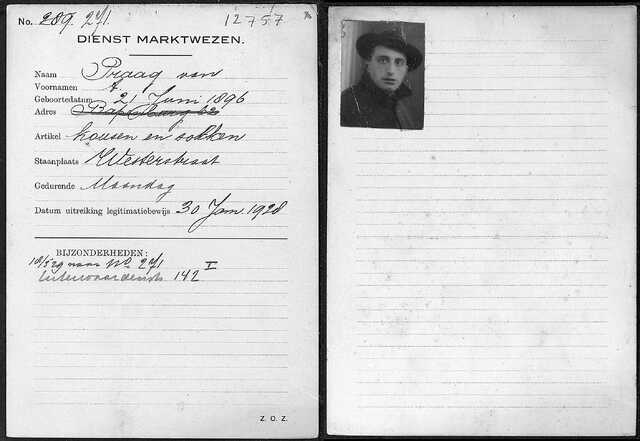 No. 209. 271. 12757
DIENST MARKTWEZEN.
Naam Praag van
Voornamen A.
Geboortedatum 21 Juni 1896
Adres
Artikel kousen en sokken
Staanplaats Westerstraat
Gedurende Maandag
Datum uitreiking legitimatiebewijs 30 Jan. 1928
BIJZONDERHEDEN:
naar No. 271
Uiterwaardenstr 142 I
Z. O. Z.